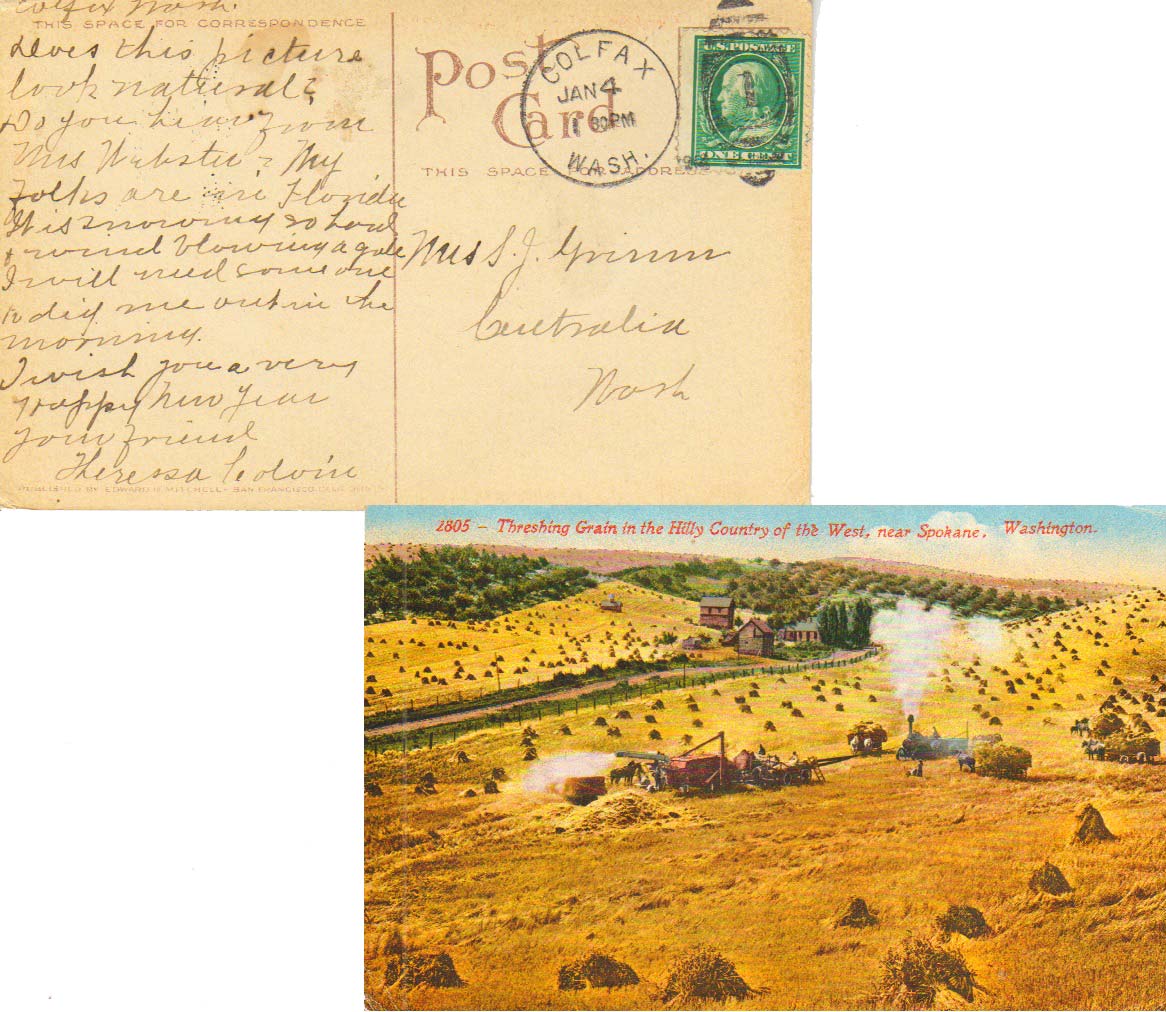 Colfax Wash.
THIS SPACE FOR CORRESPONDENCE
Does this picture
look natural?
Do you hear from
Mrs Webster? My
Folks are in Florida
It is snowing so hard
& wind blowing a gale
I will need some one
to dig me out in the
morning.
I wish you a very
Happy New Year
your friend
Theressa Colvin
PUBLISHED BY EDWARD H. MITCHELL, SAN FRANCISCO
Post
Card
THIS SPACE FOR ADDRESS
COLFAX
JAN 4
1 30 PM
WASH.
U.S. POSTAGE
ONE CENT
Mrs S. J. Grimm
Centralia
Wash
2805 – Threshing Grain in the Hilly Country of the West, near Spokane, Washington.